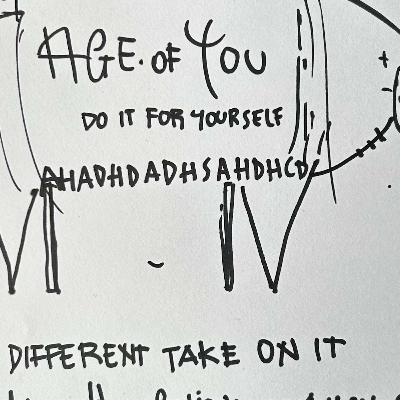 AGE. OF YOU
DO IT FOR YOURSELF
AHADHDADHSAHDHCD
DIFFERENT TAKE ON IT